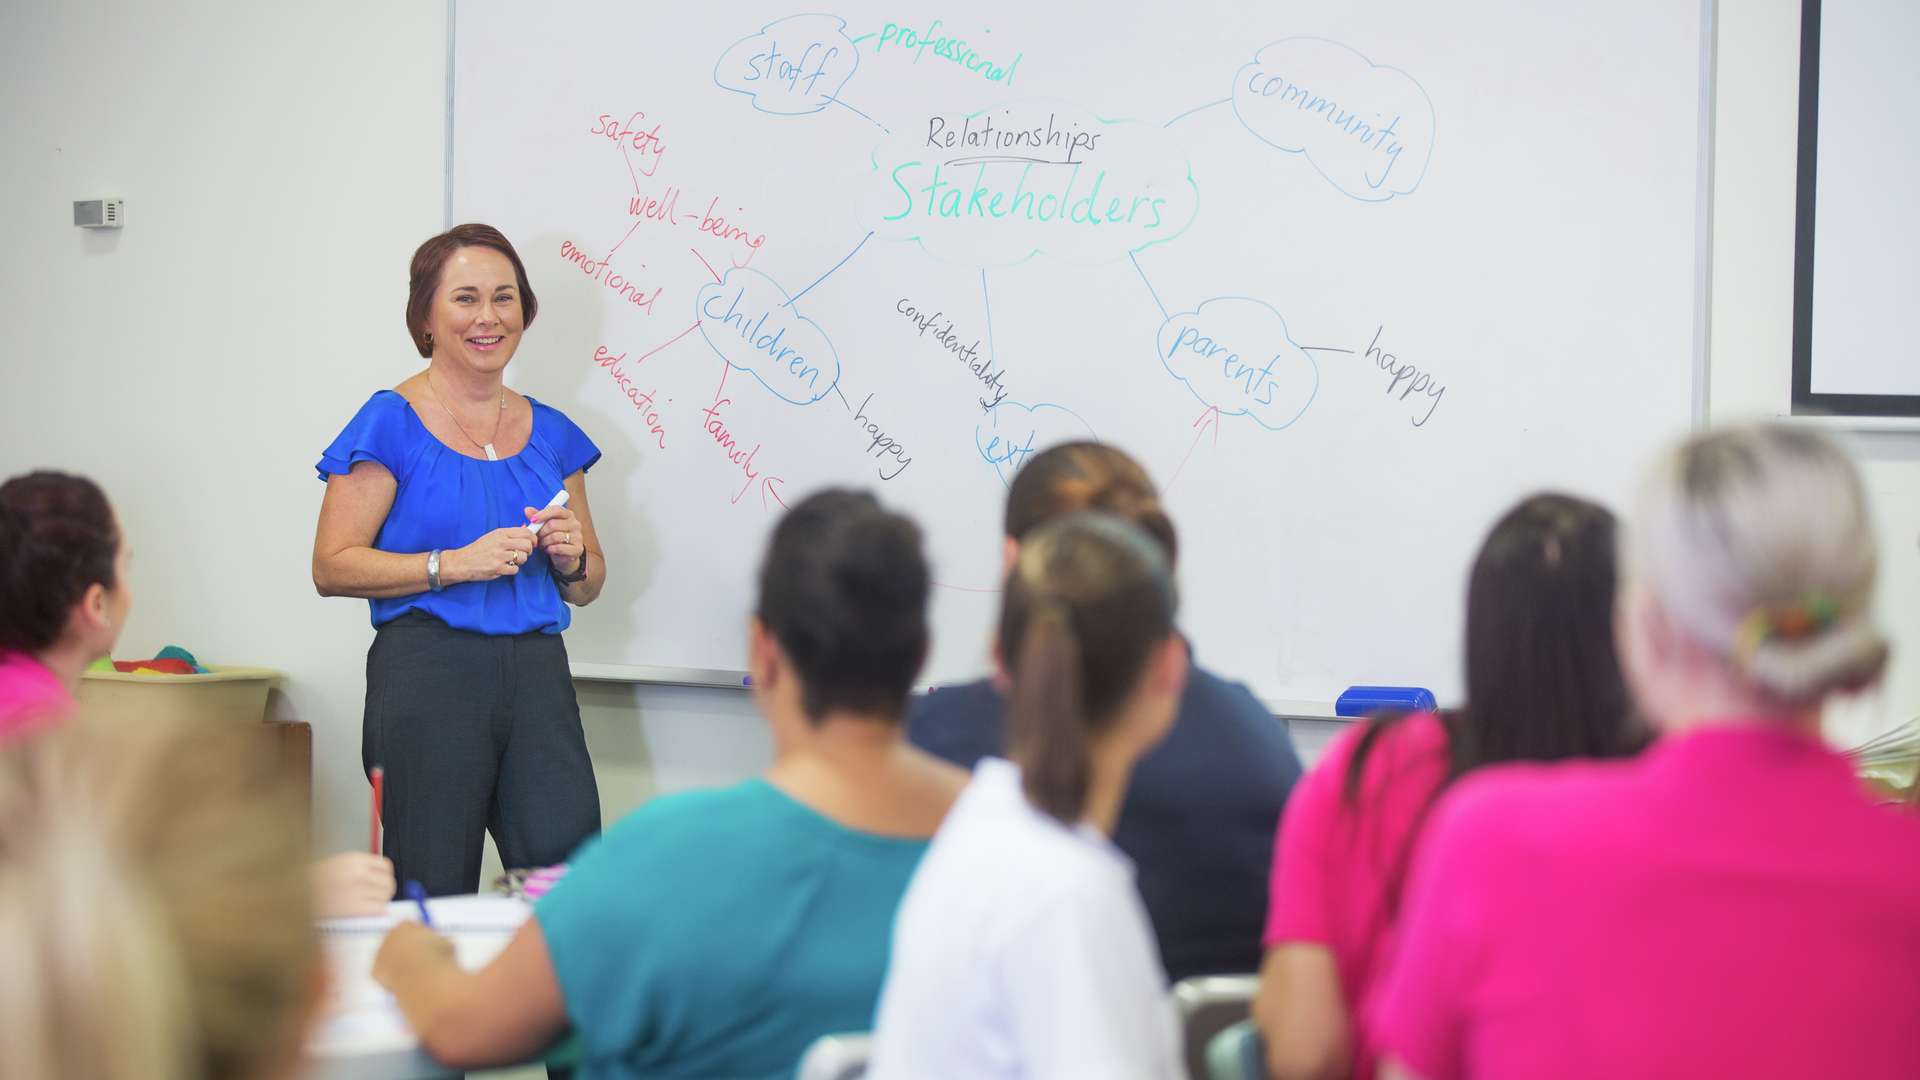 staff
professional
community
Relationships
Stakeholders
safety
well-being
emotional
children
education
family
happy
confidentiality
parents
happy